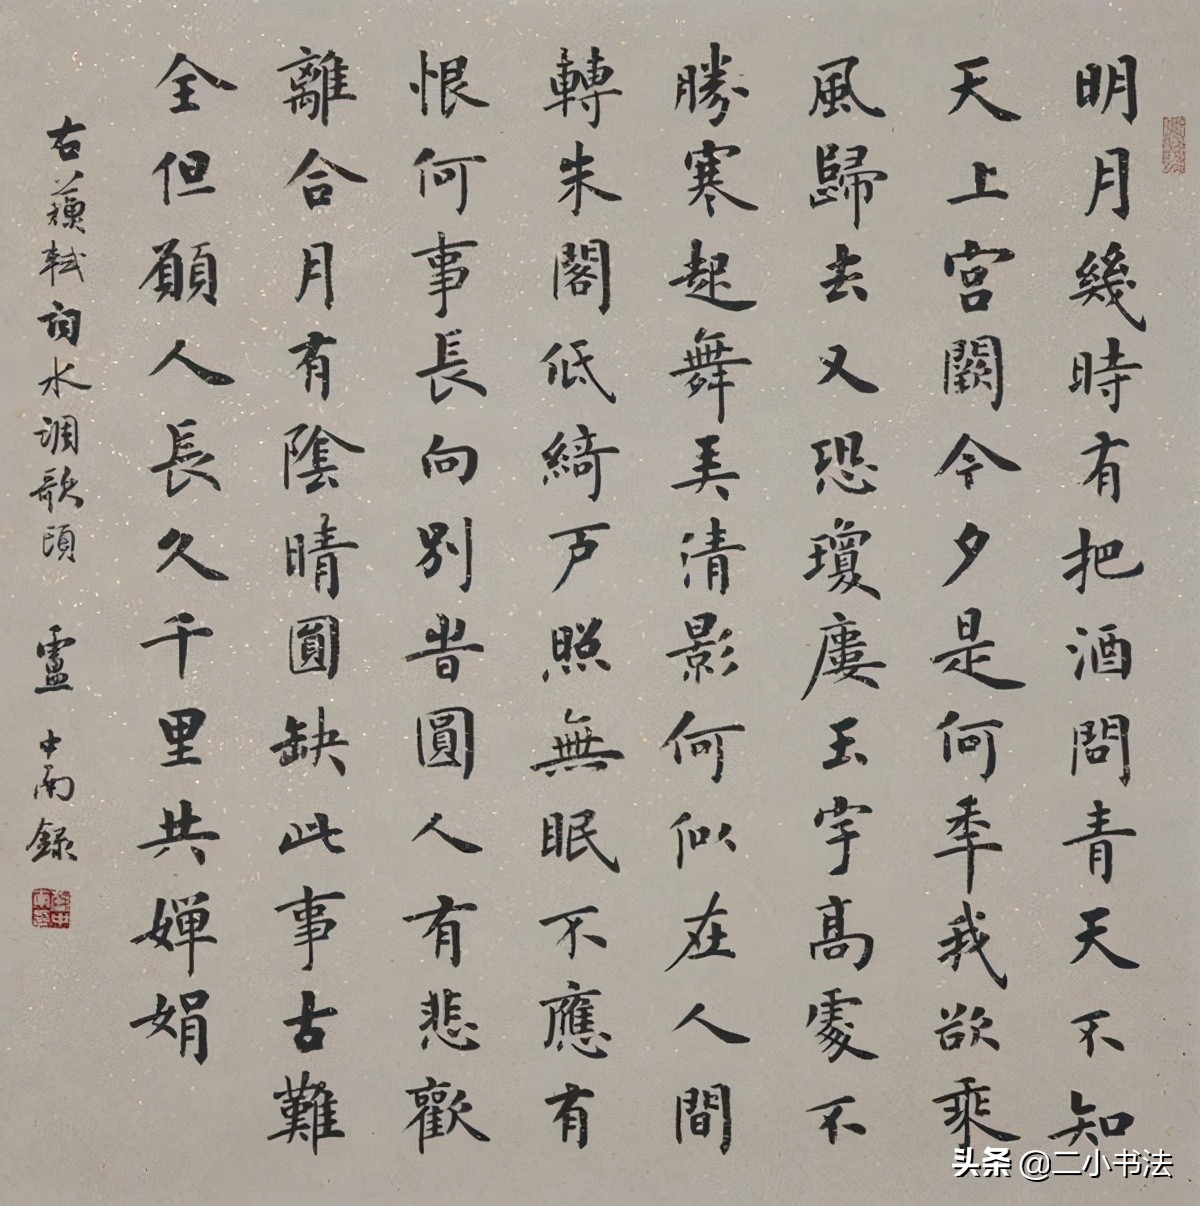 明月幾時有把酒問青天不知
天上宮闕今夕是何秊我欲乘
風歸去又恐瓊廔玉宇高處不
勝寒起舞弄清影何似在人間
轉朱閣低綺戶照無眠不應有
恨何事長向別旹圓人有悲歡
離合月有陰晴圓缺此事古難
全但願人長久千里共嬋娟
右蘇軾詞水調歌頭 盧中南錄
头条 @二小书法